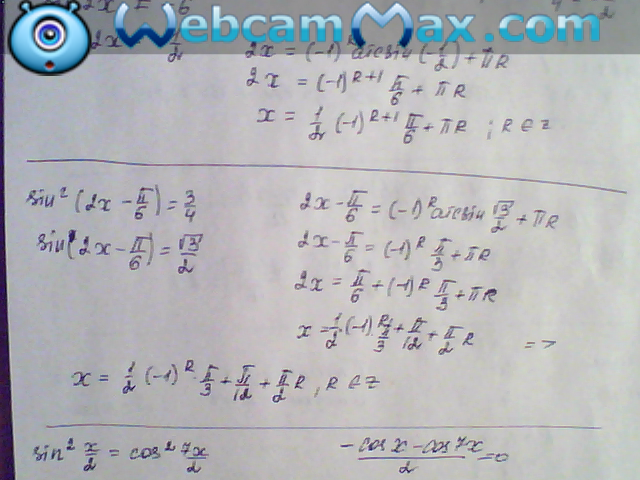 WebcamMax.com
2x = (-1)^R arcsin(-1/2) + πR
2x = (-1)^{R+1} π/6 + πR
x = 1/2 (-1)^{R+1} π/6 + πR ; R ∈ z
sin² (2x - π/6) = 3/4
sin(2x - π/6) = √3/2
2x - π/6 = (-1)^R arcsin √3/2 + πR
2x - π/6 = (-1)^R π/3 + πR
2x = π/6 + (-1)^R π/3 + πR
x = 1/2 · (-1)^R · π/3 + π/12 + π/2 R =>
x = 1/2 (-1)^R · π/3 + π/12 + π/2 R, R ∈ z
sin² x/2 = cos² 7x/2
(-cos x - cos 7x)/2 = 0